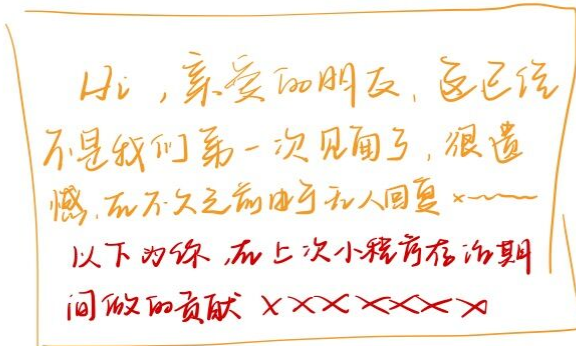 Hi，亲爱的朋友，这已经
不是我们第一次见面了，很遗
憾，在不久之前由于无人回复 x~~~
以下为你，在上次小程序存活期
间做的贡献 XXXXXXXX